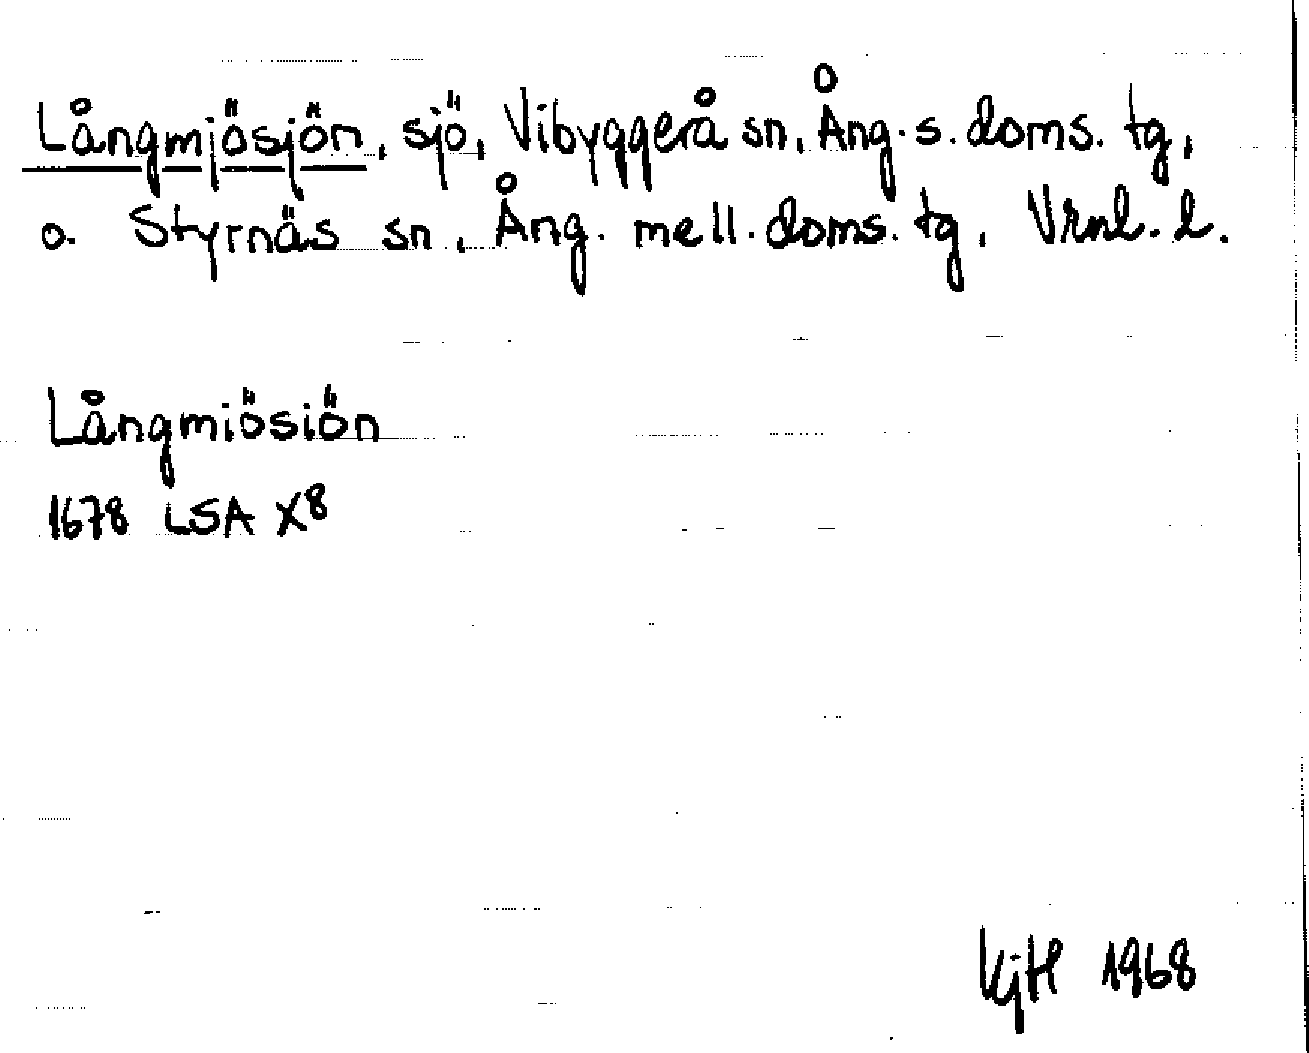 Långmjösjön, sjö, Vibyggerå sn, Ång. s. doms. tg,
o. Styrnäs sn, Ång. mell. doms. tg, Vrnl. l.
Långmiösiön
1678 LSA X8
KjH 1968